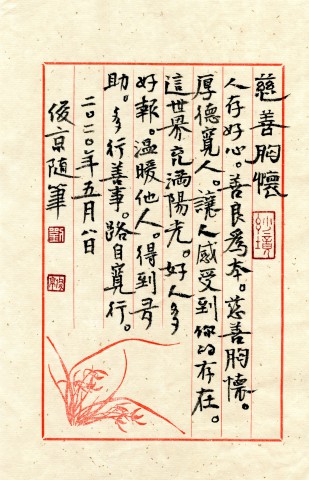 慈善胸懷
人存好心。善良為本。慈善胸懷。
厚德寬人。讓人感受到你的存在。
這世界充滿陽光。好人多
好報。温暖他人。得到
助。多行善事。路自寬行。
二〇二〇年五月八日
俊京随筆